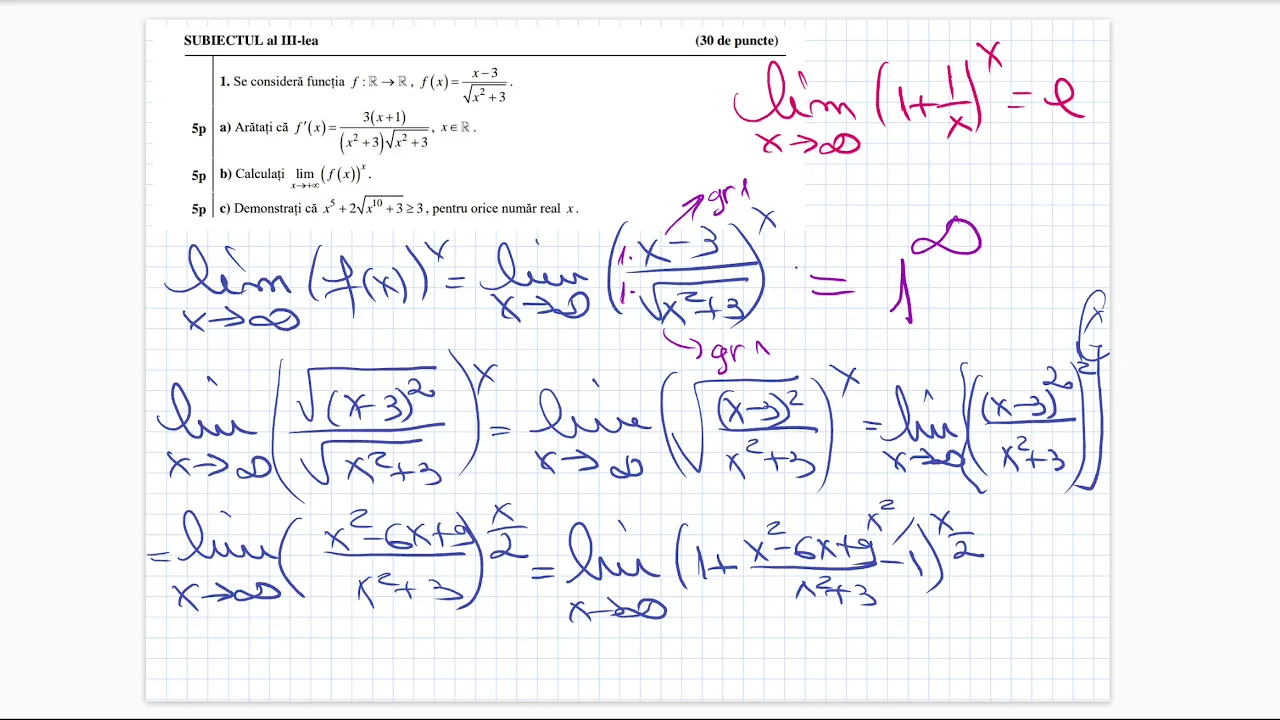 SUBIECTUL al III-lea (30 de puncte)
1. Se consideră funcția f : ℝ → ℝ, f(x) = (x − 3)/√(x² + 3).
5p a) Arătați că f′(x) = 3(x + 1)/((x² + 3)√(x² + 3)), x ∈ ℝ.
5p b) Calculați lim_{x→+∞} (f(x))^x.
5p c) Demonstrați că x⁵ + 2√(x¹⁰ + 3) ≥ 3, pentru orice număr real x.
lim_{x→∞} (1 + 1/x)^x = e
gr 1
lim_{x→∞} (f(x))^x = lim_{x→∞} ((1·x − 3)/(1·√(x² + 3)))^x = 1^∞
gr 1
lim_{x→∞} (√((x−3)²)/√(x²+3))^x = lim_{x→∞} (√((x−3)²/(x²+3)))^x = lim_{x→∞} [((x−3)²/(x²+3))^
= lim_{x→∞} ((x² − 6x + 9)/(x² + 3))^(x/2) = lim_{x→∞} (1 + (x² − 6x + 9)/(x² + 3) − 1)^(x/2)
x²